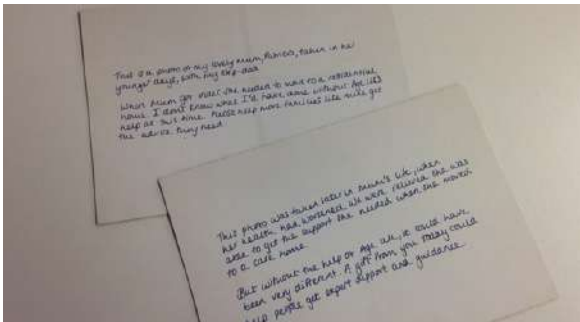 This is a photo of my lovely mum, Patricia, taken in her
younger days, with my step-dad.
When Mum got older she needed to move to a residential
home. I don't know what I'd have done without Age UK's
help at this time. Please help more families like mine get
the advice they need.
This photo was taken later in Mum's life, when
her health had worsened. We were relieved she was
able to get the support she needed when she moved
to a care home.
But without the help of Age UK, it could have
been very different. A gift from you today could
help people get expert support and guidance.